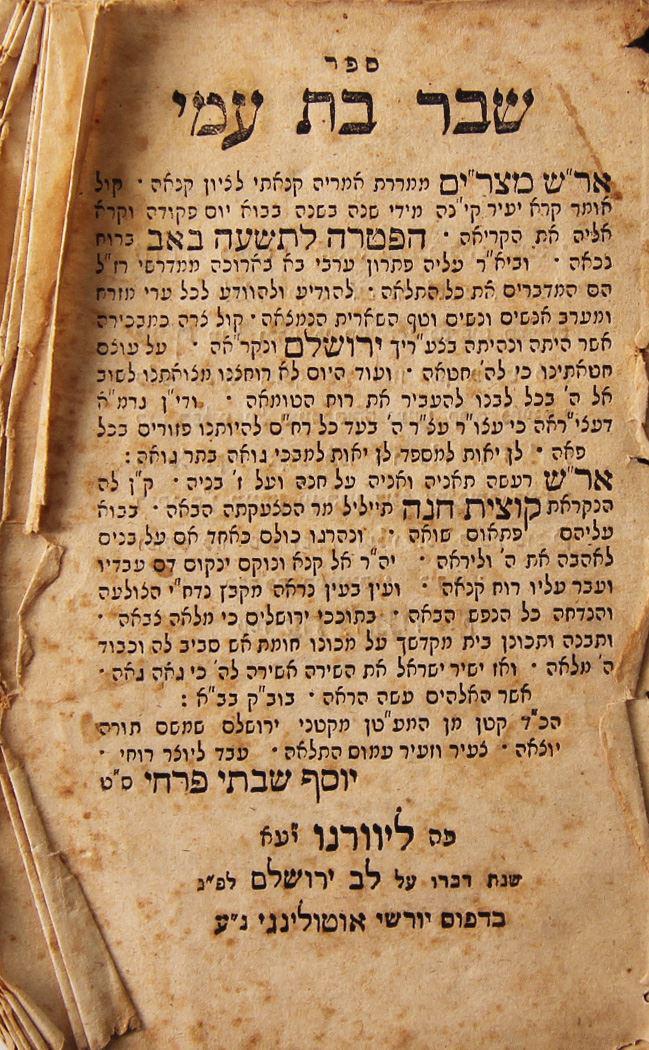 ספר
שבר בת עמי
אר"ש מצר"ים ממררת אמריה קנאתי לציון קנאה · קול
אומר קרא יעיר קי"נה מידי שנה בשנה בבוא יום פקודה וקרא
אליה את הקריאה · הפטרה לתשעה באב ברוח
נכאה · וביא"ר עליה פתרון ערבי בא בארוכה ממדרשי רז"ל
הם המדברים את כל התלאה · להודיע ולהוודע לכל ערי מזרח
ומערב אנשים ונשים וטף השארית הנמצאה · קול צרה כמבכירה
אשר היתה ונהיתה בצע"ריך ירושלם ונקר"אה · על עוצם
חטאתינו כי לה' חטאה · ועוד היום לא רוחצנו מצואתנו לשוב
אל ה' בכל לבנו להעביר את רוח הטומאה · ודי"ן גרמ"א
דעצי"ראה כי עצו"ר עצ"ר ה' בעד כל רח"ם להיותנו פזורים בכל
פאה · לן יאות למספד לן יאות למבכי גואה בתר גואה :
אר"ש רעשה תאניה ואניה על חנה ועל ז' בניה · ק"ן לה
הנקראת קוצית חנה תייליל מר הכצעקתה הבאה · בבוא
עליהם פתאום שואה · ונהרגו כולם כאחד אם על בנים
לאהבה את ה' וליראה · יה"ר אל קנא ונוקם ינקום דם עבדיו
ועבר עליו רוח קנאה · ועין בעין נראה מקבץ נדח"י הצולעה
והנדחה כל הנפש הבאה · בתוככי ירושלים כי מלאה צבאה ·
ותבנה ותכונן בית מקדשך על מכונו חומת אש סביב לה וכבוד
ה' מלאה · ואז ישיר ישראל את השירה אשירה לה' כי גאה גאה ·
אשר האלהים עשה הראה · בוב"ק בב"א :
הכ"ד קטן מן המע"טן מקטני ירושלם שמשם תורה
יוצאה · צעיר וזעיר עמוס התלאה · עבד ליוצר רוחי ·
יוסף שבתי פרחי ס"ט
פה ליוורנו יע"א
שנת דברו על לב ירושלם לפ"ג
בדפוס יורשי אוטולינגי נ"ע